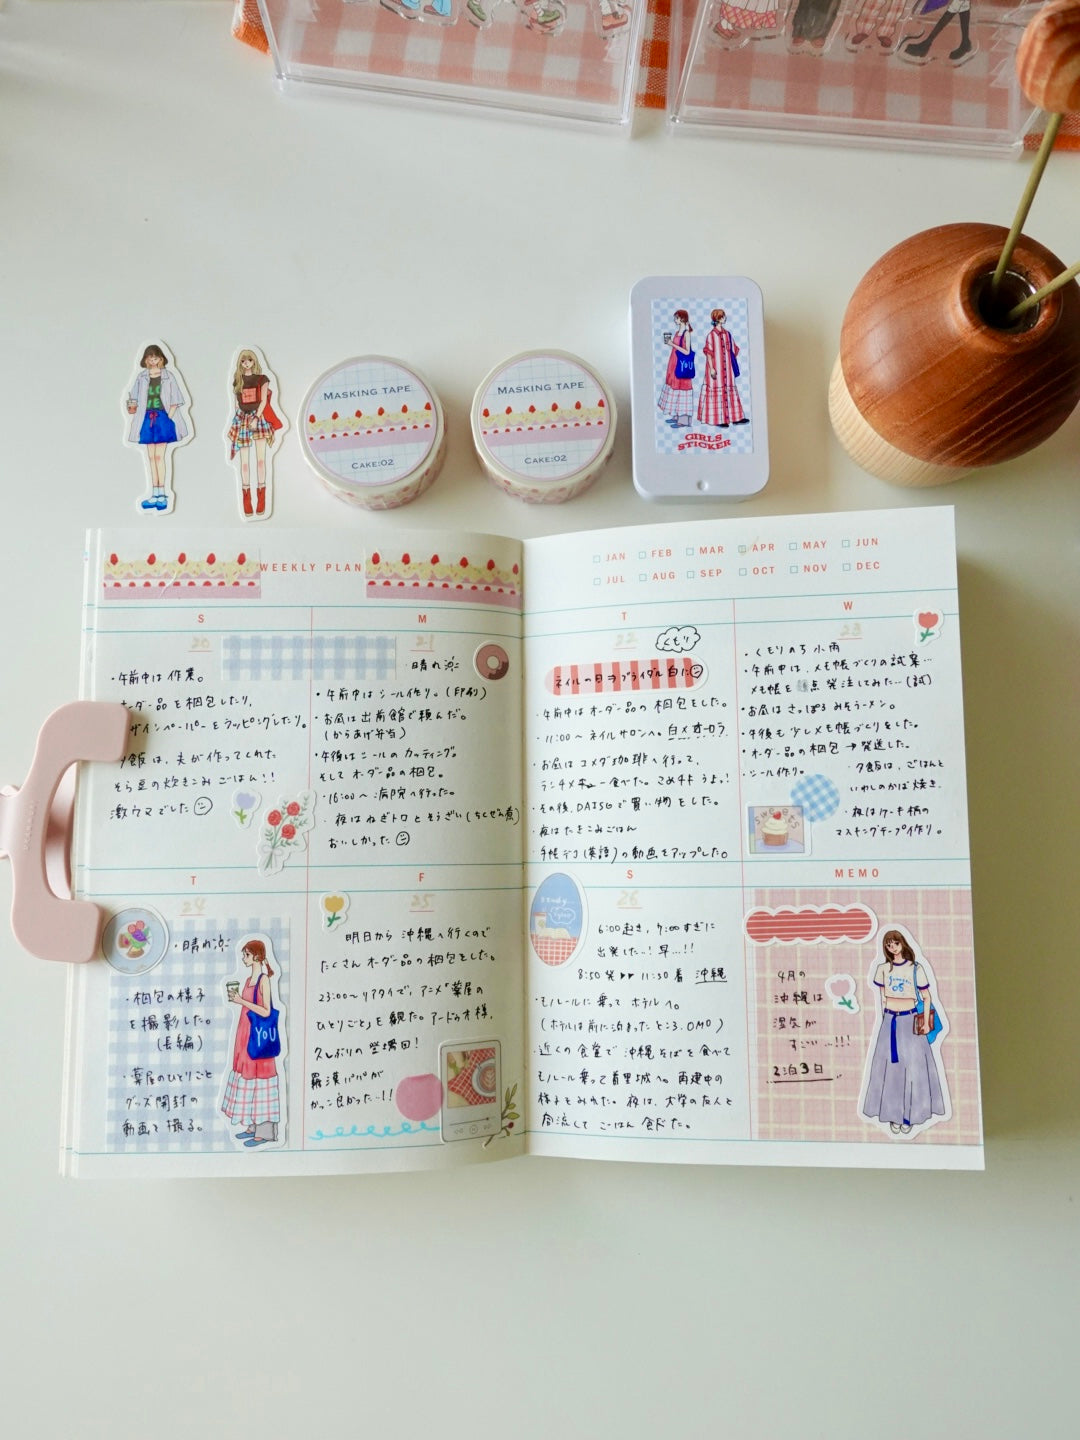 MASKING TAPE
CAKE:02
MASKING TAPE
CAKE:02
YOU
GIRLS
STICKER
WEEKLY PLAN
JAN FEB MAR APR MAY JUN
JUL AUG SEP OCT NOV DEC
S
20
・午前中は作業。
オーダー品を梱包したり、
ザインペーパーをラッピングしたり。
夕飯は、夫が作ってくれた
そら豆の炊きこみごはん!!
激ウマでした
M
21
・晴れ
・午前中はシール作り。(印刷)
・お昼は出前館で頼んだ。
(からあげ弁当)
・午後はシールのカッティング。
そしてオーダー品の梱包。
・16:00〜病院へ行った。
・夜はねぎトロとそうざい(ちくぜん煮)
おいしかった
T
22
くもり
ネイルの日⇒ブライダル白だ
・午前中はオーダー品の梱包をした。
・11:00〜ネイルサロンへ。白×オーロラ
・お昼はコメダ珈琲へ行って、
ランチメニュー食べた。
・その後、DAISOで買い物をした。
・夜はたきこみごはん
・手帳デコ(英語)の動画をアップした。
W
23
・くもりのち小雨
・午前中は、メモ帳づくりの試案…
メモ帳を 点発注してみた…(試)
・お昼はさっぽろみそラーメン。
・午後も少しメモ帳づくりをした。
・オーダー品の梱包→発送した。
・シール作り。
・夕飯は、ごはんと
いわしのかば焼き。
・夜はケーキ柄の
マスキングテープ作り。
sweets
T
24
・晴れ
・梱包の様子
を撮影した。
(長編)
・薬屋のひとりごと
グッズ開封の
動画を撮る。
YOU
F
25
明日から沖縄へ行くので
たくさんオーダー品の梱包をした。
23:00〜リアタイで、アニメ「薬屋の
ひとりごと」を観た。アードゥオ様、
久しぶりの登場回!
羅漢パパが
かっこ良かった…!!
S
26
study...
6:00起き、7:00すぎに
出発した…!早…!!
8:50発▶▶11:30着 沖縄
・モノレールに乗ってホテルへ。
(ホテルは前に泊まったところ.OMO)
・近くの食堂で沖縄そばを食べて
モノレール乗って首里城へ。再建中の
様子をみれた。夜は、大学の友人と
合流してごはん食べた。
MEMO
4月の
沖縄は
湿気が
すごい…!!!
2泊3日